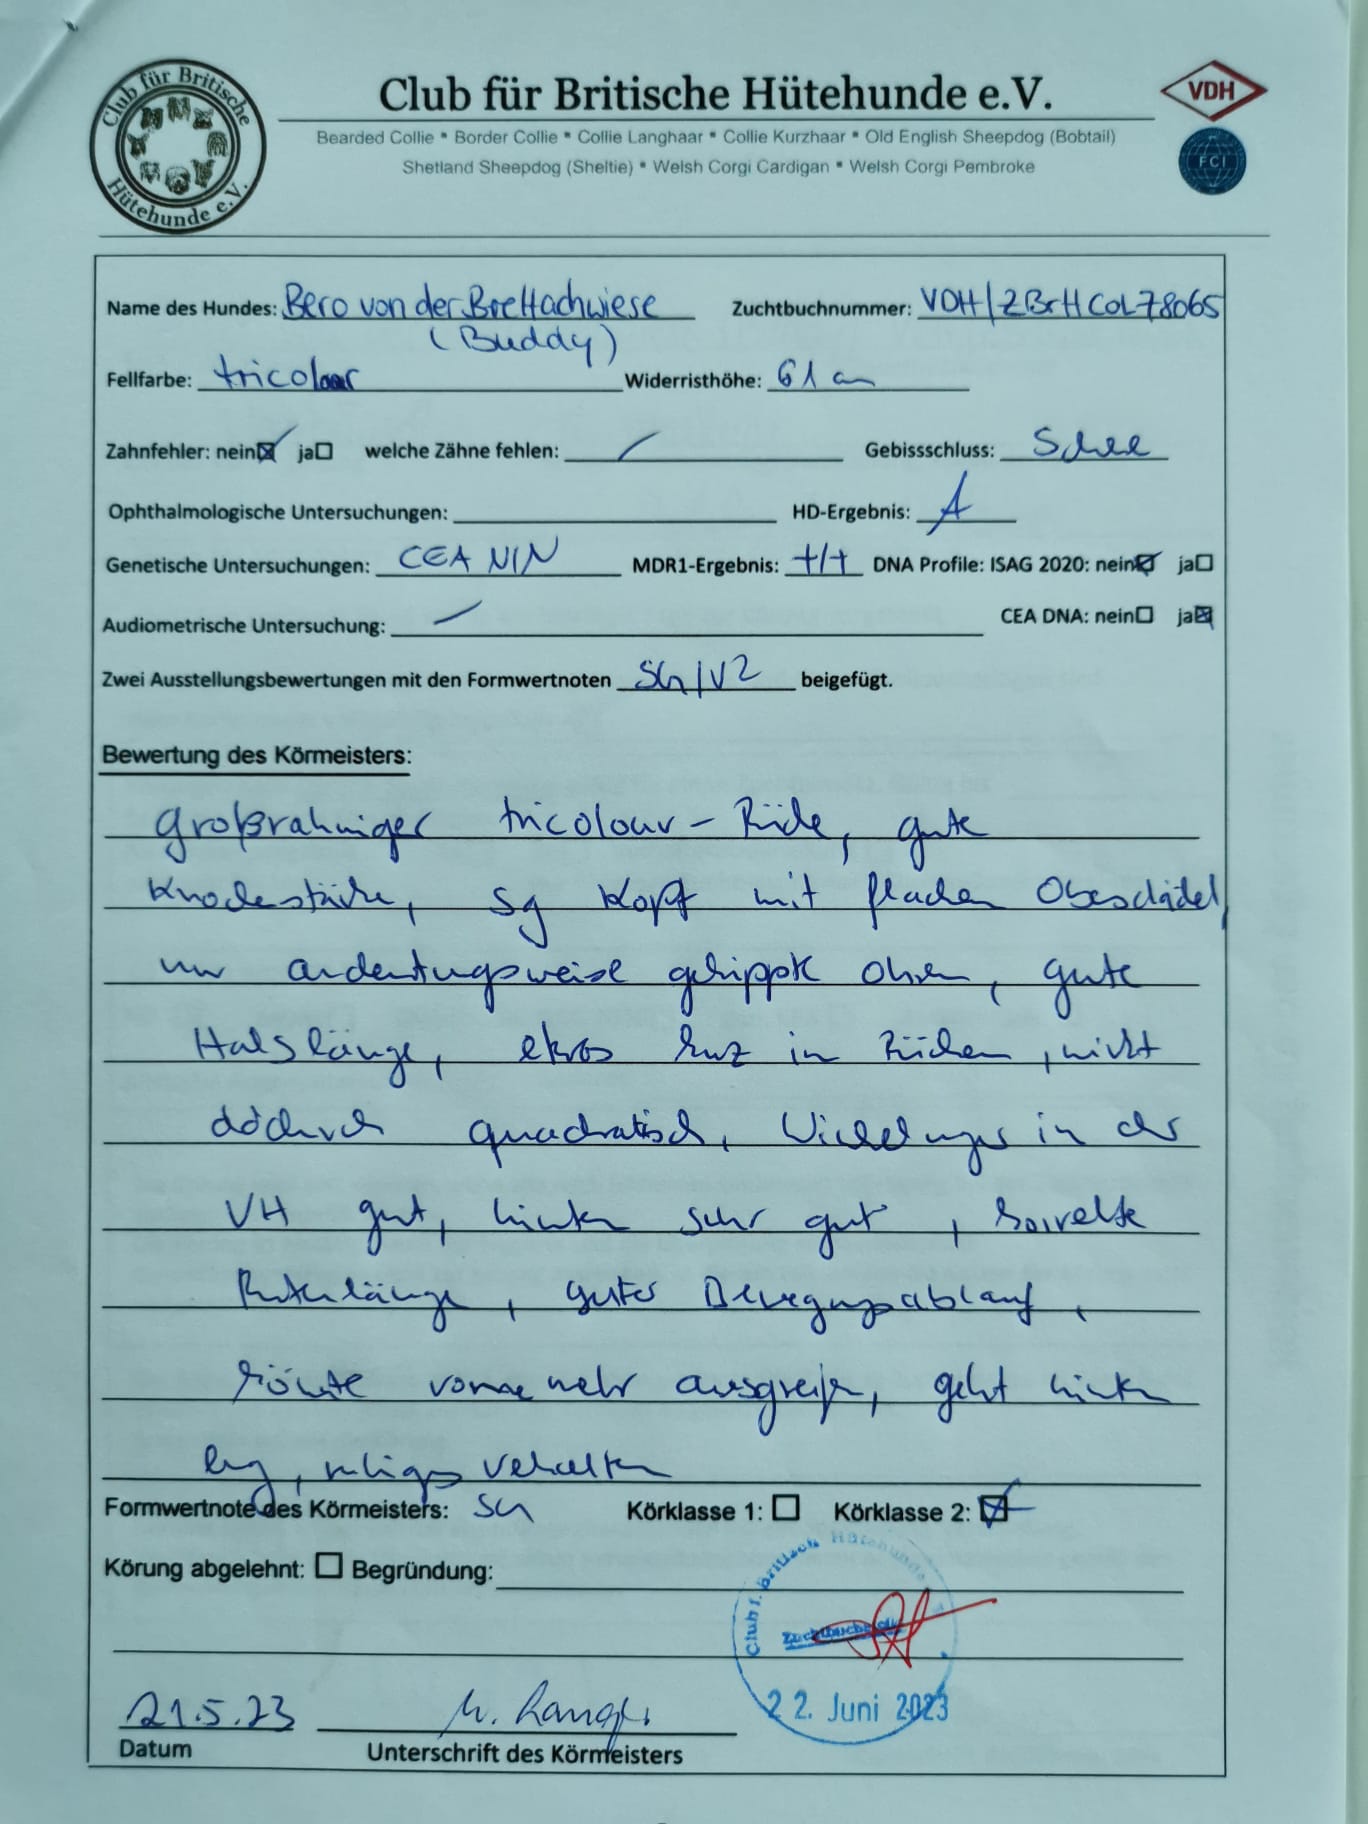 Club für Britische Hütehunde e.V.
Club für Britische Hütehunde e.V.
VDH
FCI
Bearded Collie * Border Collie * Collie Langhaar * Collie Kurzhaar * Old English Sheepdog (Bobtail)
Shetland Sheepdog (Sheltie) * Welsh Corgi Cardigan * Welsh Corgi Pembroke
Name des Hundes: Bero von der Brettachwiese Zuchtbuchnummer: VDH/ZBrH COL 78065
(Buddy)
Fellfarbe: tricolour Widerristhöhe: 61 cm
Zahnfehler: nein☒ ja☐ welche Zähne fehlen: / Gebissschluss: Schere
Ophthalmologische Untersuchungen: HD-Ergebnis: A
Genetische Untersuchungen: CEA N/N MDR1-Ergebnis: +/+ DNA Profile: ISAG 2020: nein☒ ja☐
Audiometrische Untersuchung: / CEA DNA: nein☐ ja☒
Zwei Ausstellungsbewertungen mit den Formwertnoten SG/V2 beigefügt.
Bewertung des Körmeisters:
großrahmiger tricolour-Rüde, gute
Knochenstärke, sg Kopf mit flachem Oberschädel,
nur andeutungsweise gekippte Ohren, gute
Halslänge, etwas kurz im Rücken, nicht
dadurch quadratisch, Winkelungen in der
VH gut, hinten sehr gut, korrekte
Rutenlänge, guter Bewegungsablauf,
könnte vorne mehr ausgreifen, geht hinten
eng, ruhiges Verhalten
Formwertnote des Körmeisters: SG Körklasse 1: ☐ Körklasse 2: ☒
Körung abgelehnt: ☐ Begründung:
Club f. Britisch Hütehunde
Zuchtbuchstelle
22. Juni 2023
21.5.23
Datum Unterschrift des Körmeisters